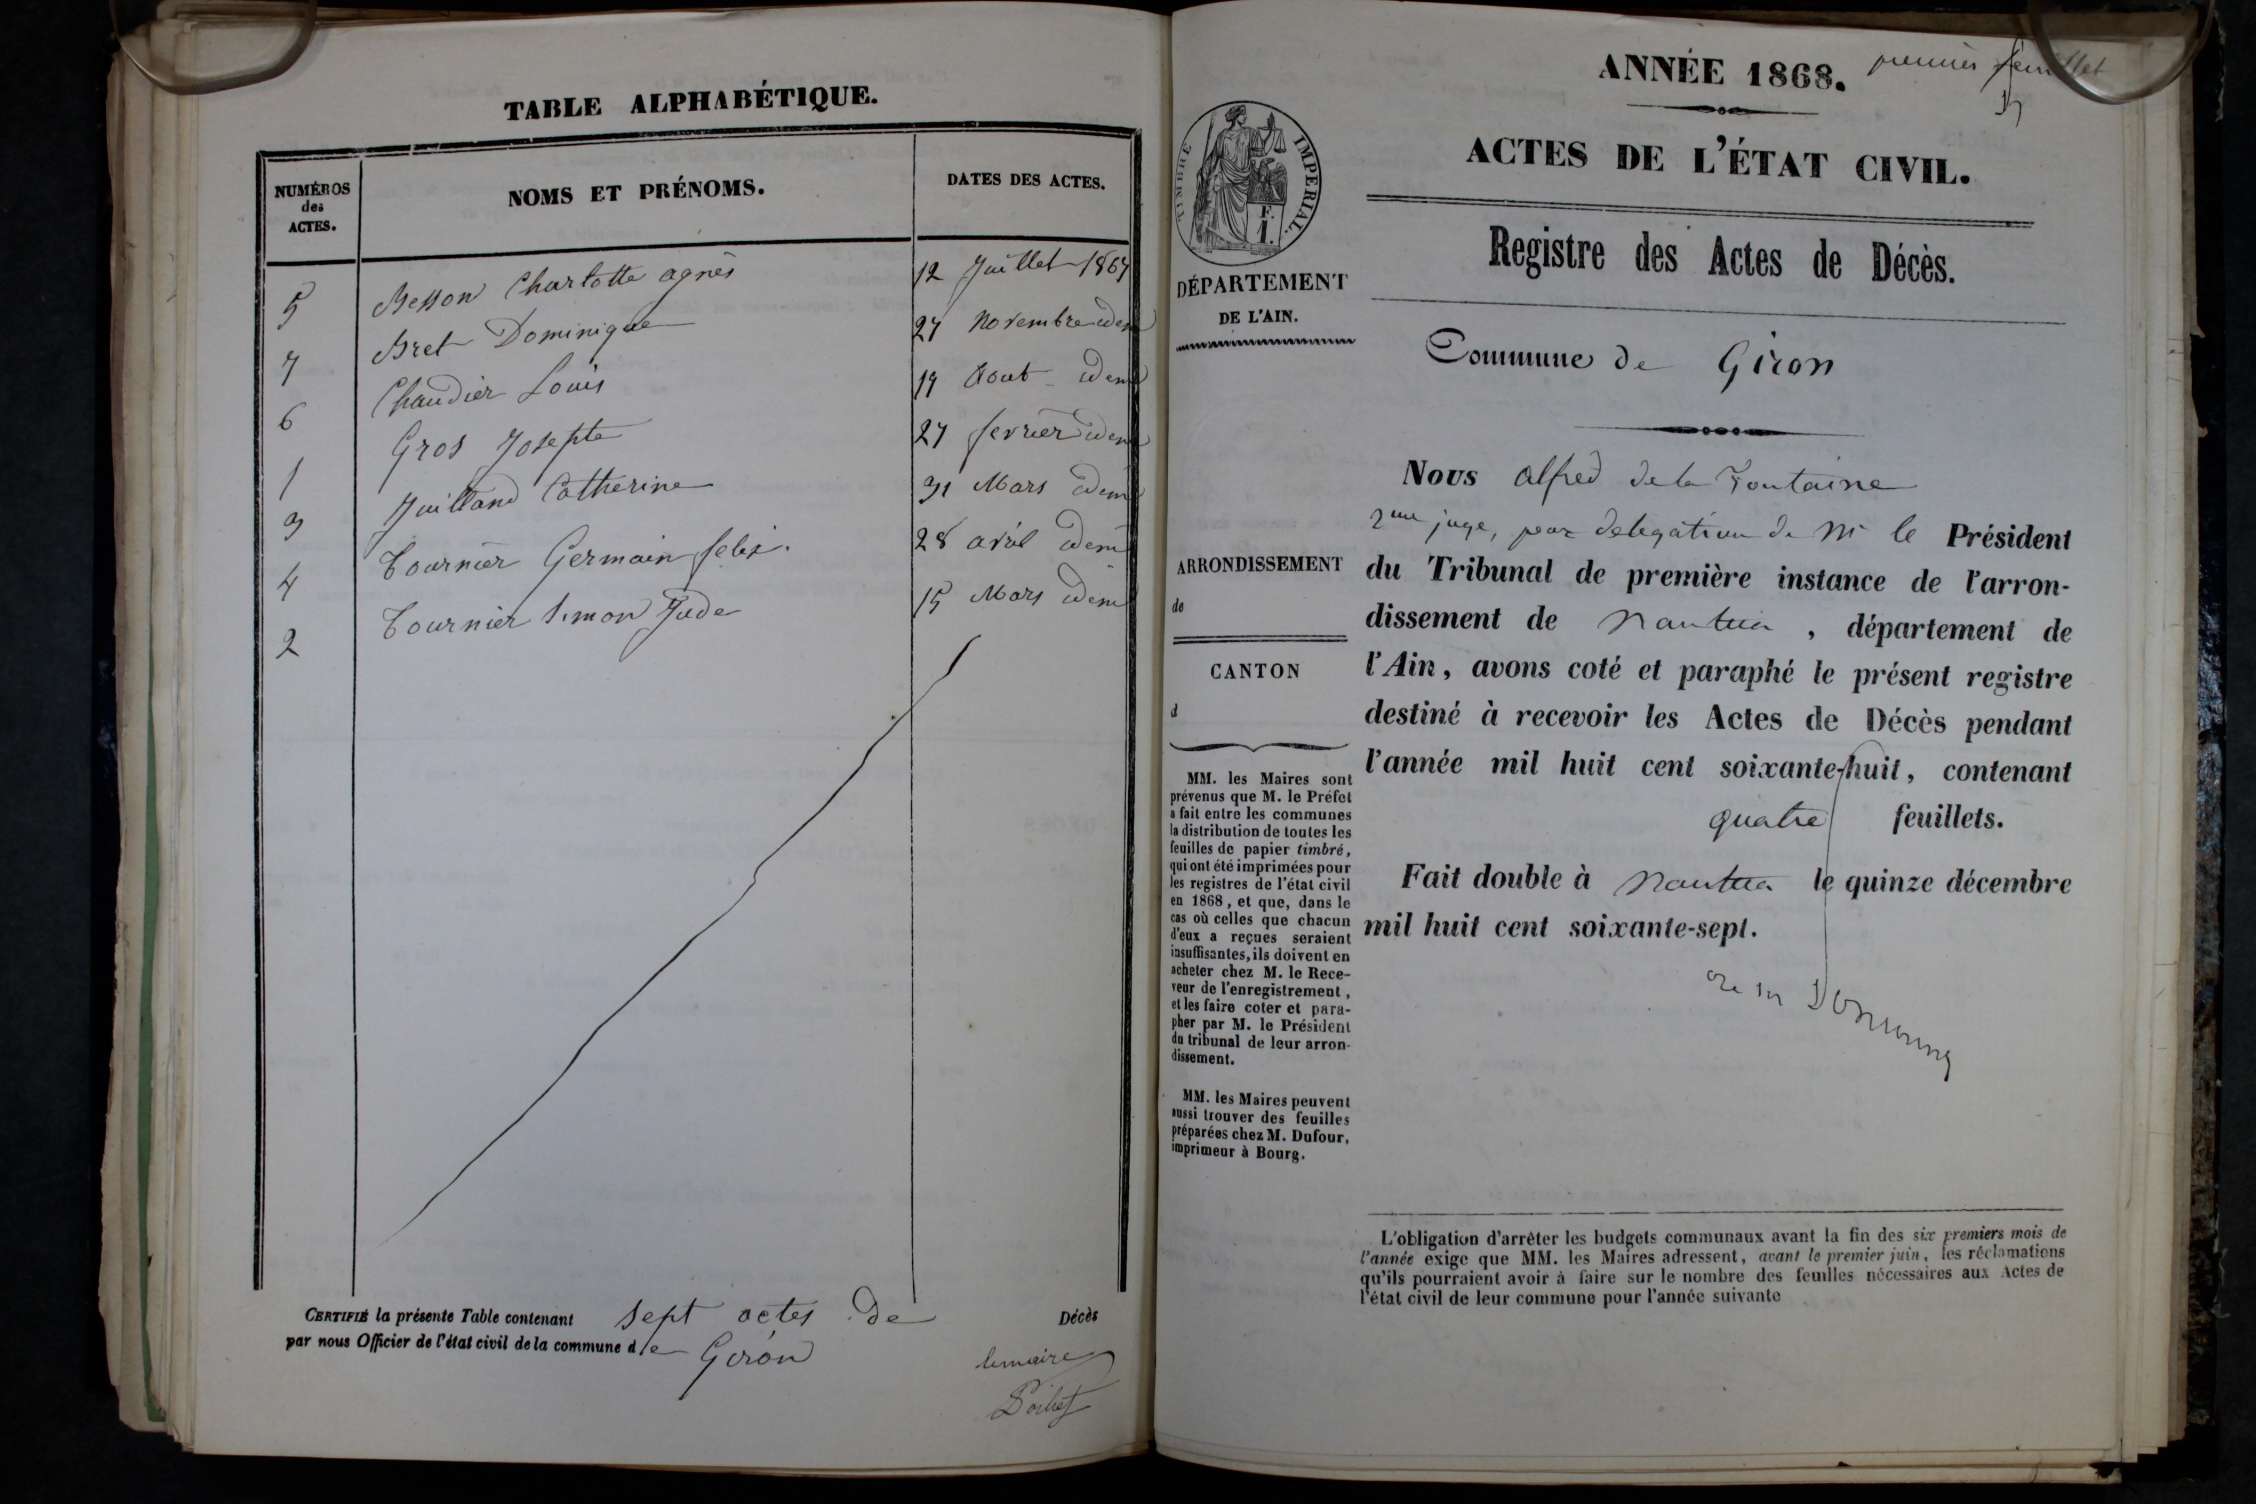 TABLE ALPHABÉTIQUE.
NUMÉROS
des
ACTES.
NOMS ET PRÉNOMS.
DATES DES ACTES.
5 Besson Charlotte agnès 12 Juillet 1867
7 Bret Dominique 27 Novembre idem
6 Chaudier Louis 19 Aout idem
1 Gros Josepte 27 fevrier idem
3 Juilland Catherine 31 Mars idem
4 Tournier Germain felix. 28 avril idem
2 Tournier Simon Jude 15 Mars idem
CERTIFIÉ la présente Table contenant sept actes de Décès
par nous Officier de l'état civil de la commune de Giron
le maire
ANNÉE 1868.
premier feuillet
ACTES DE L'ÉTAT CIVIL.
Registre des Actes de Décès.
TIMBRE IMPERIAL.
F.
1.
DÉPARTEMENT
DE L'AIN.
Commune de Giron
ARRONDISSEMENT
de
CANTON
d
MM. les Maires sont
prévenus que M. le Préfet
a fait entre les communes
la distribution de toutes les
feuilles de papier timbré,
qui ont été imprimées pour
les registres de l'état civil
en 1868, et que, dans le
cas où celles que chacun
d'eux a reçues seraient
insuffisantes, ils doivent en
acheter chez M. le Rece-
veur de l'enregistrement,
et les faire coter et para-
pher par M. le Président
du tribunal de leur arron-
dissement.
MM. les Maires peuvent
aussi trouver des feuilles
préparées chez M. Dufour,
imprimeur à Bourg.
Nous alfred de la Fontaine
2me juge, par delegation de Mr le Président
du Tribunal de première instance de l'arron-
dissement de Nantua, département de
l'Ain, avons coté et paraphé le présent registre
destiné à recevoir les Actes de Décès pendant
l'année mil huit cent soixante-huit, contenant
quatre feuillets.
Fait double à Nantua le quinze décembre
mil huit cent soixante-sept.
L'obligation d'arrêter les budgets communaux avant la fin des six premiers mois de
l'année exige que MM. les Maires adressent, avant le premier juin, les réclamations
qu'ils pourraient avoir à faire sur le nombre des feuilles nécessaires aux Actes de
l'état civil de leur commune pour l'année suivante